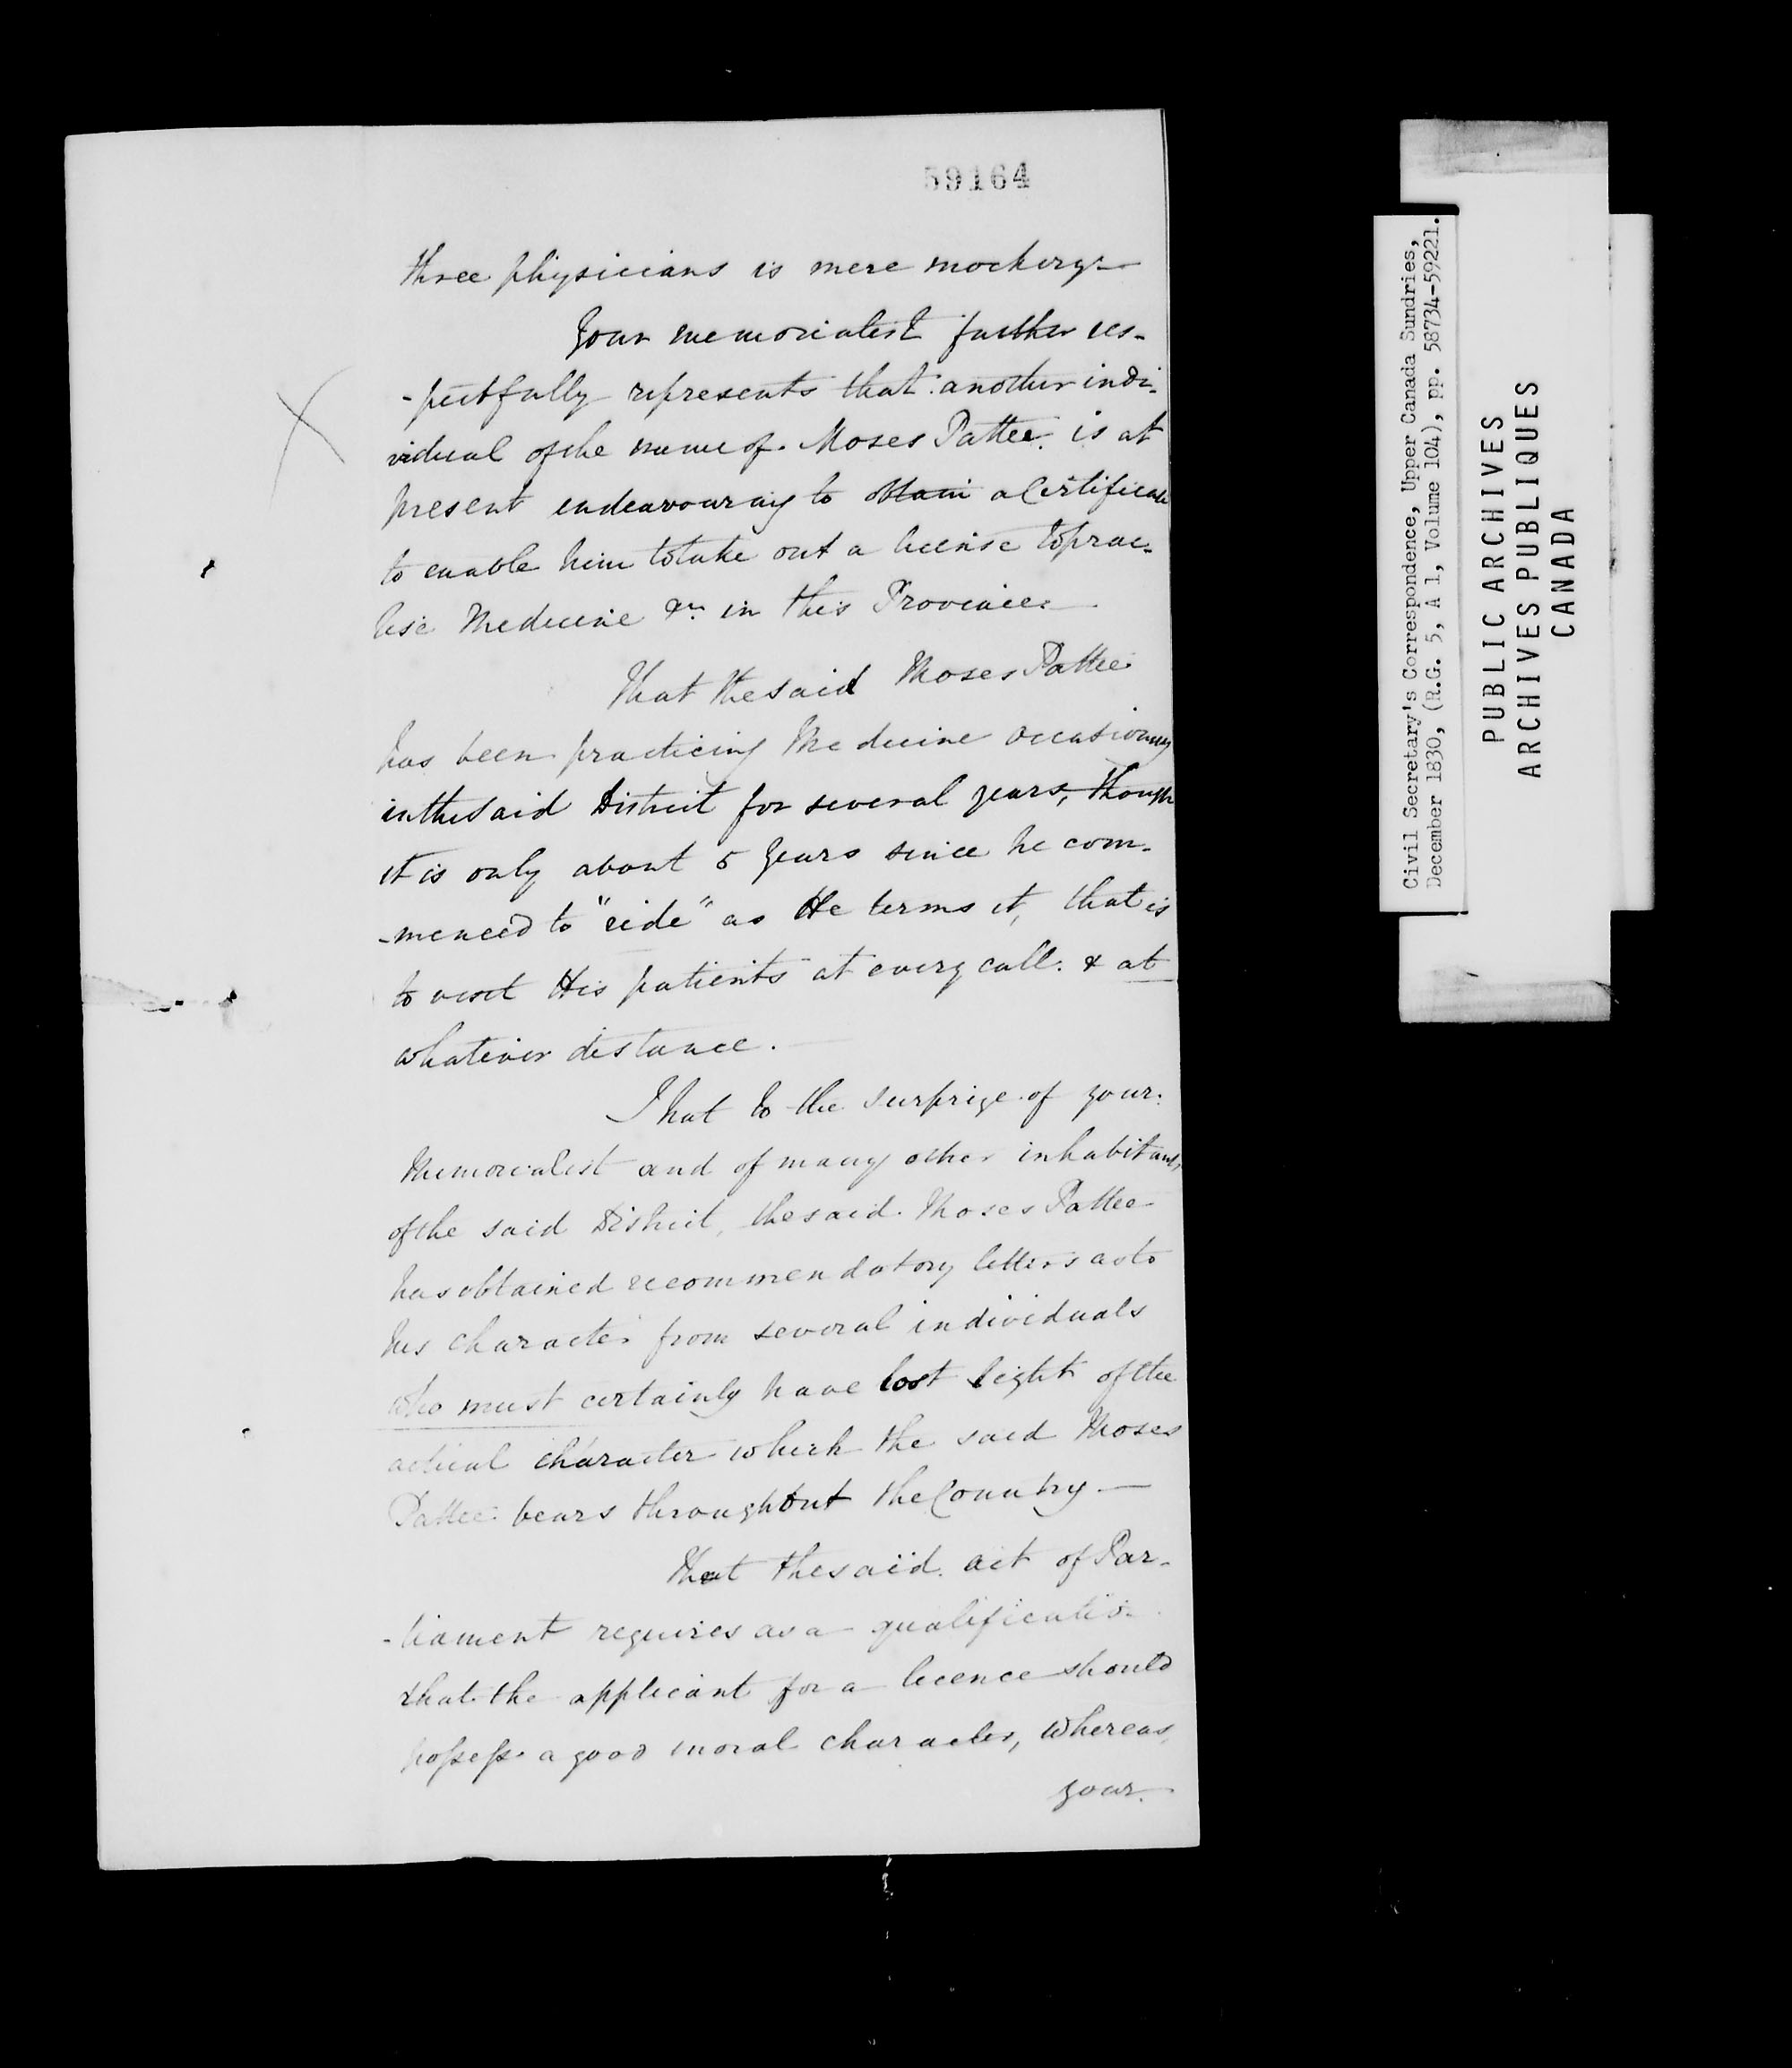 59164
three physicians is mere mockery —
Your memorialist further res-
-pectfully represents that another indi-
vidual of the name of Moses Pattee is at
present endeavouring to obtain a Certificate
to enable him to take out a license to prac-
tise Medicine &c. in this Province. —
That the said Moses Pattee
has been practicing Medicine occasionally
in the said District for several years, though
it is only about 5 years since he com-
-menced to "ride" as He terms it, that is
to visit His patients at every call & at
whatever distance. —
That to the surprize of your
Memorialist and of many other inhabitants
of the said District, the said Moses Pattee
has obtained recommendatory letters as to
his character from several individuals
who must certainly have lost sight of the
actual character which the said Moses
Pattee bears throughout the Country —
That the said act of Par-
-liament requires as a qualification
that the applicant for a licence should
possess a good moral character, whereas,
your
Civil Secretary's Correspondence, Upper Canada Sundries,
December 1830, (R.G. 5, A 1, Volume 104), pp. 58734-59221.
PUBLIC ARCHIVES
ARCHIVES PUBLIQUES
CANADA